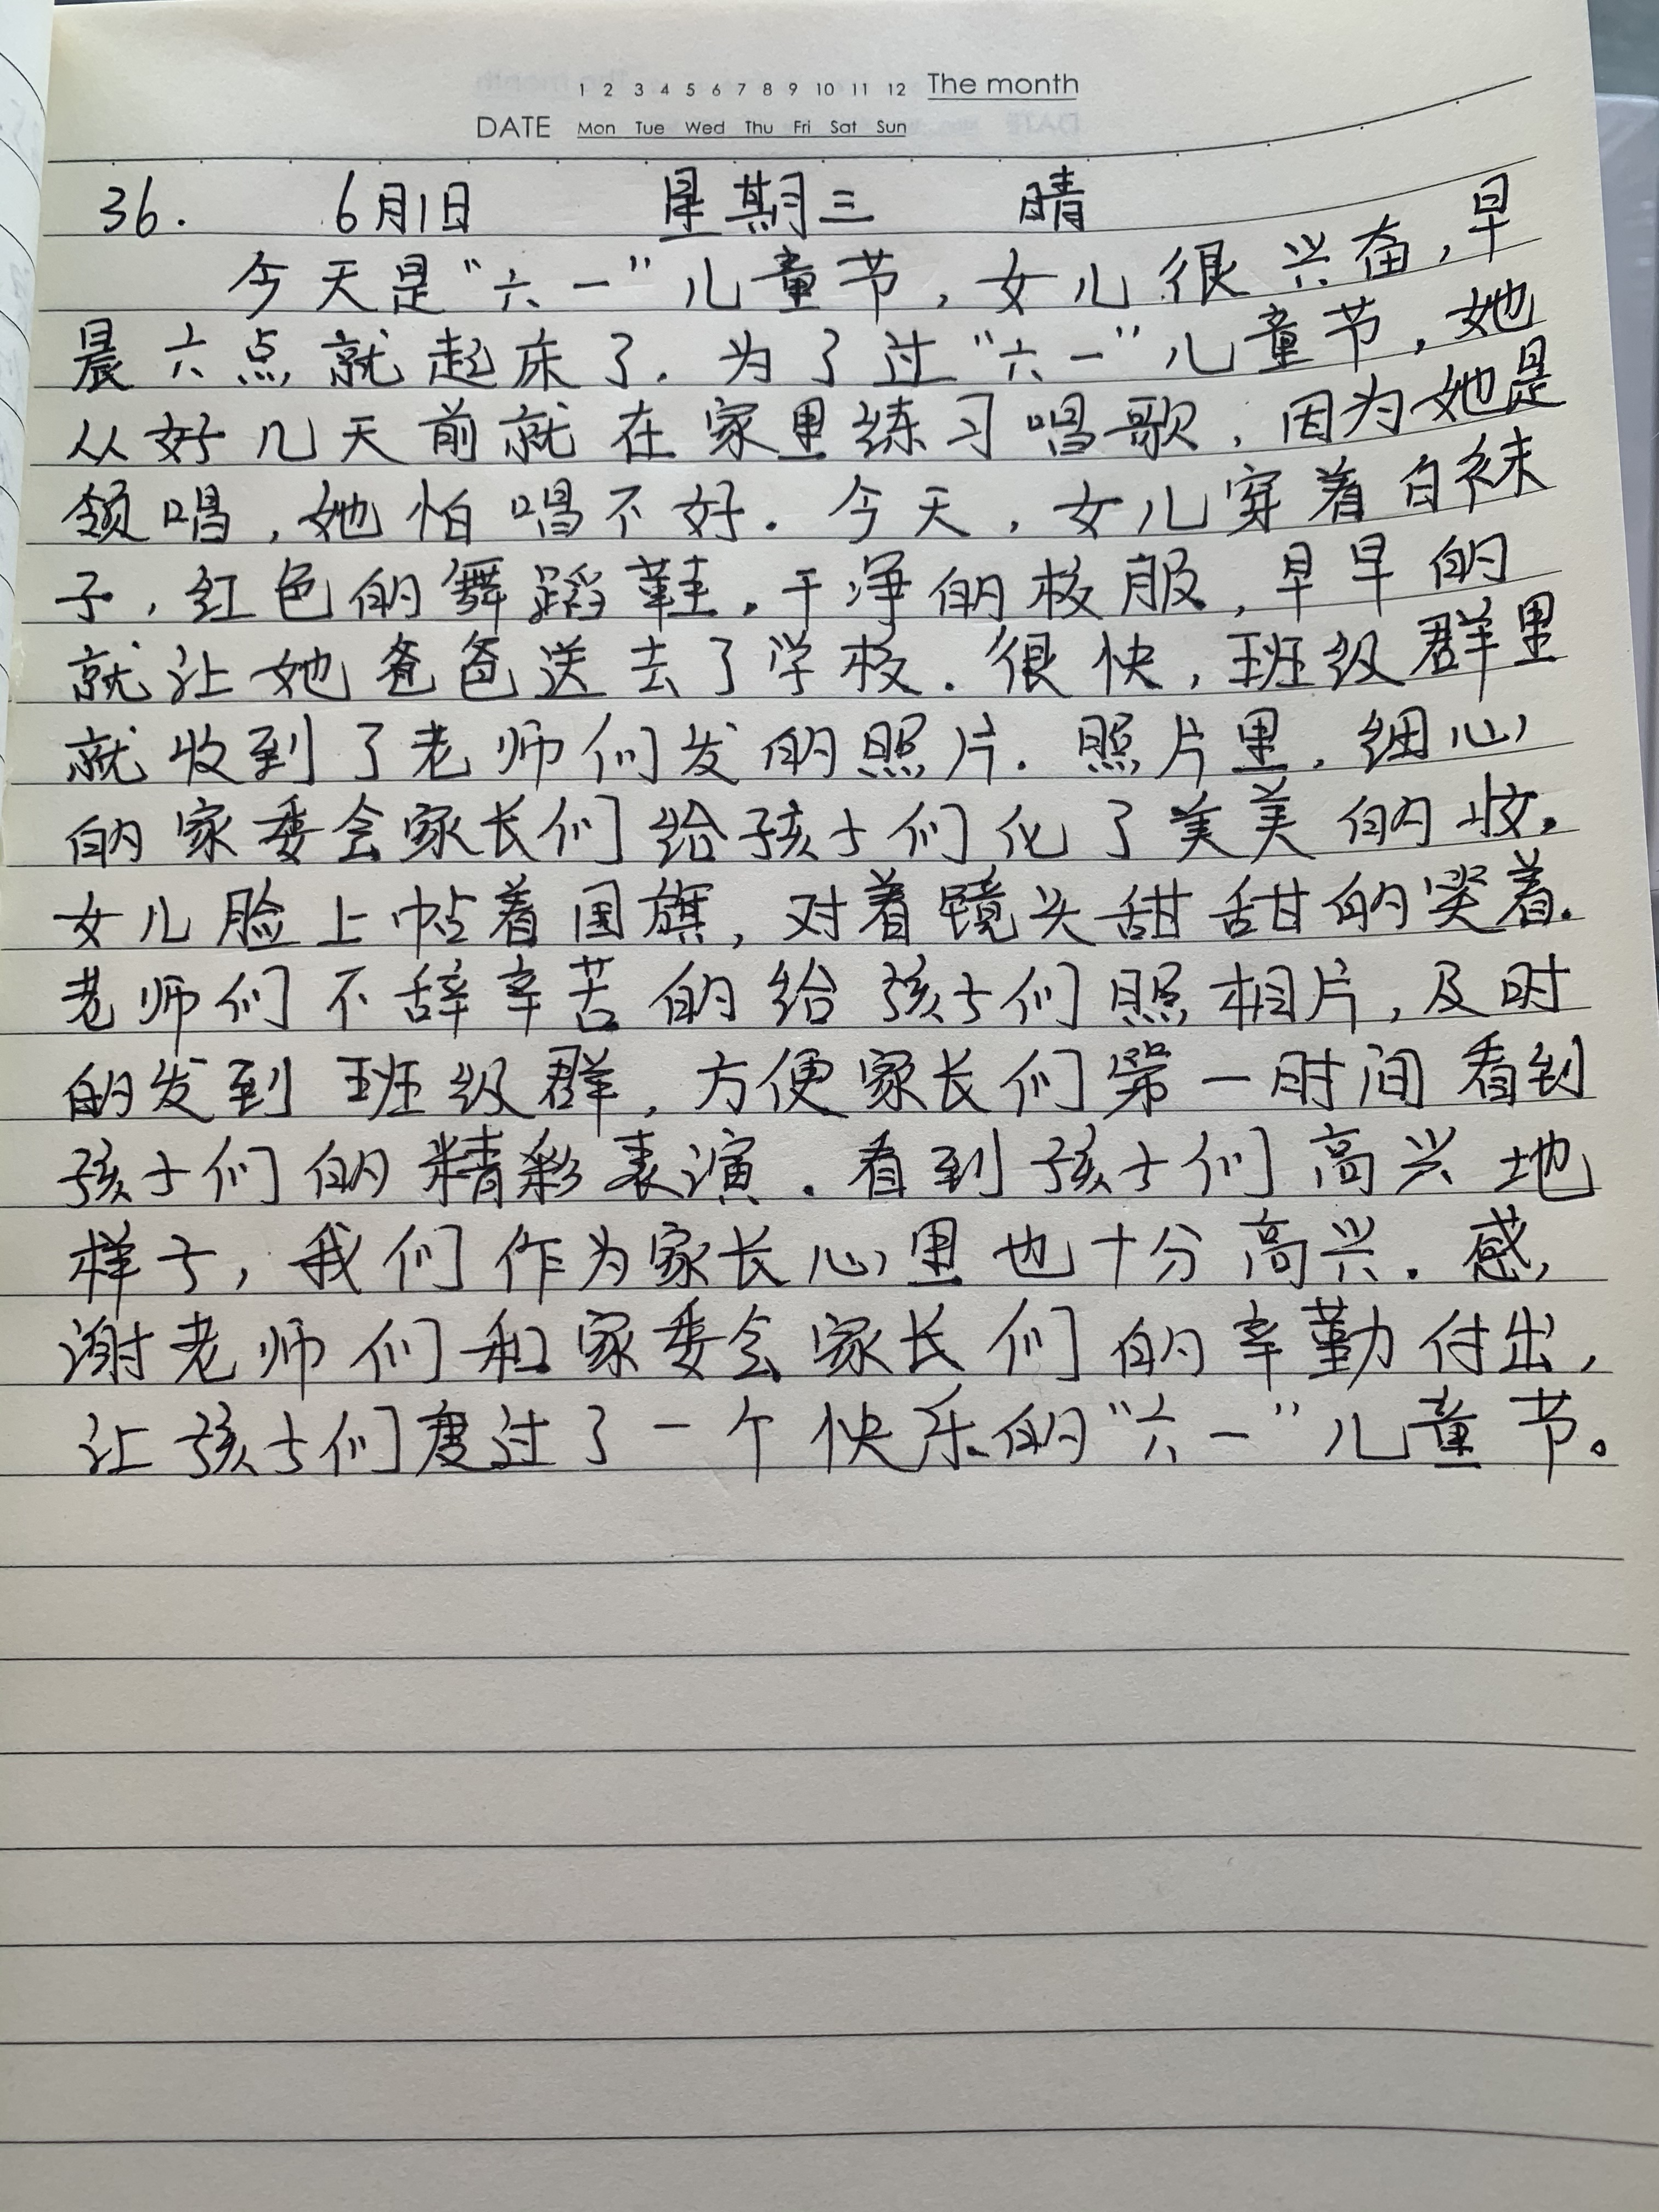 1 2 3 4 5 6 7 8 9 10 11 12 The month
DATE Mon Tue Wed Thu Fri Sat Sun
36. 6月1日 星期三 晴
今天是“六一”儿童节,女儿很兴奋,早
晨六点就起床了.为了过“六一”儿童节,她
从好几天前就在家里练习唱歌,因为她是
领唱,她怕唱不好.今天,女儿穿着白袜
子,红色的舞蹈鞋.干净的校服,早早的
就让她爸爸送去了学校.很快,班级群里
就收到了老师们发的照片.照片里,细心
的家委会家长们给孩子们化了美美的妆.
女儿脸上帖着国旗,对着镜头甜甜的笑着.
老师们不辞辛苦的给孩子们照相片,及时
的发到班级群,方便家长们第一时间看到
孩子们的精彩表演.看到孩子们高兴地
样子,我们作为家长心里也十分高兴.感
谢老师们和家委会家长们的辛勤付出,
让孩子们度过了一个快乐的“六一”儿童节。